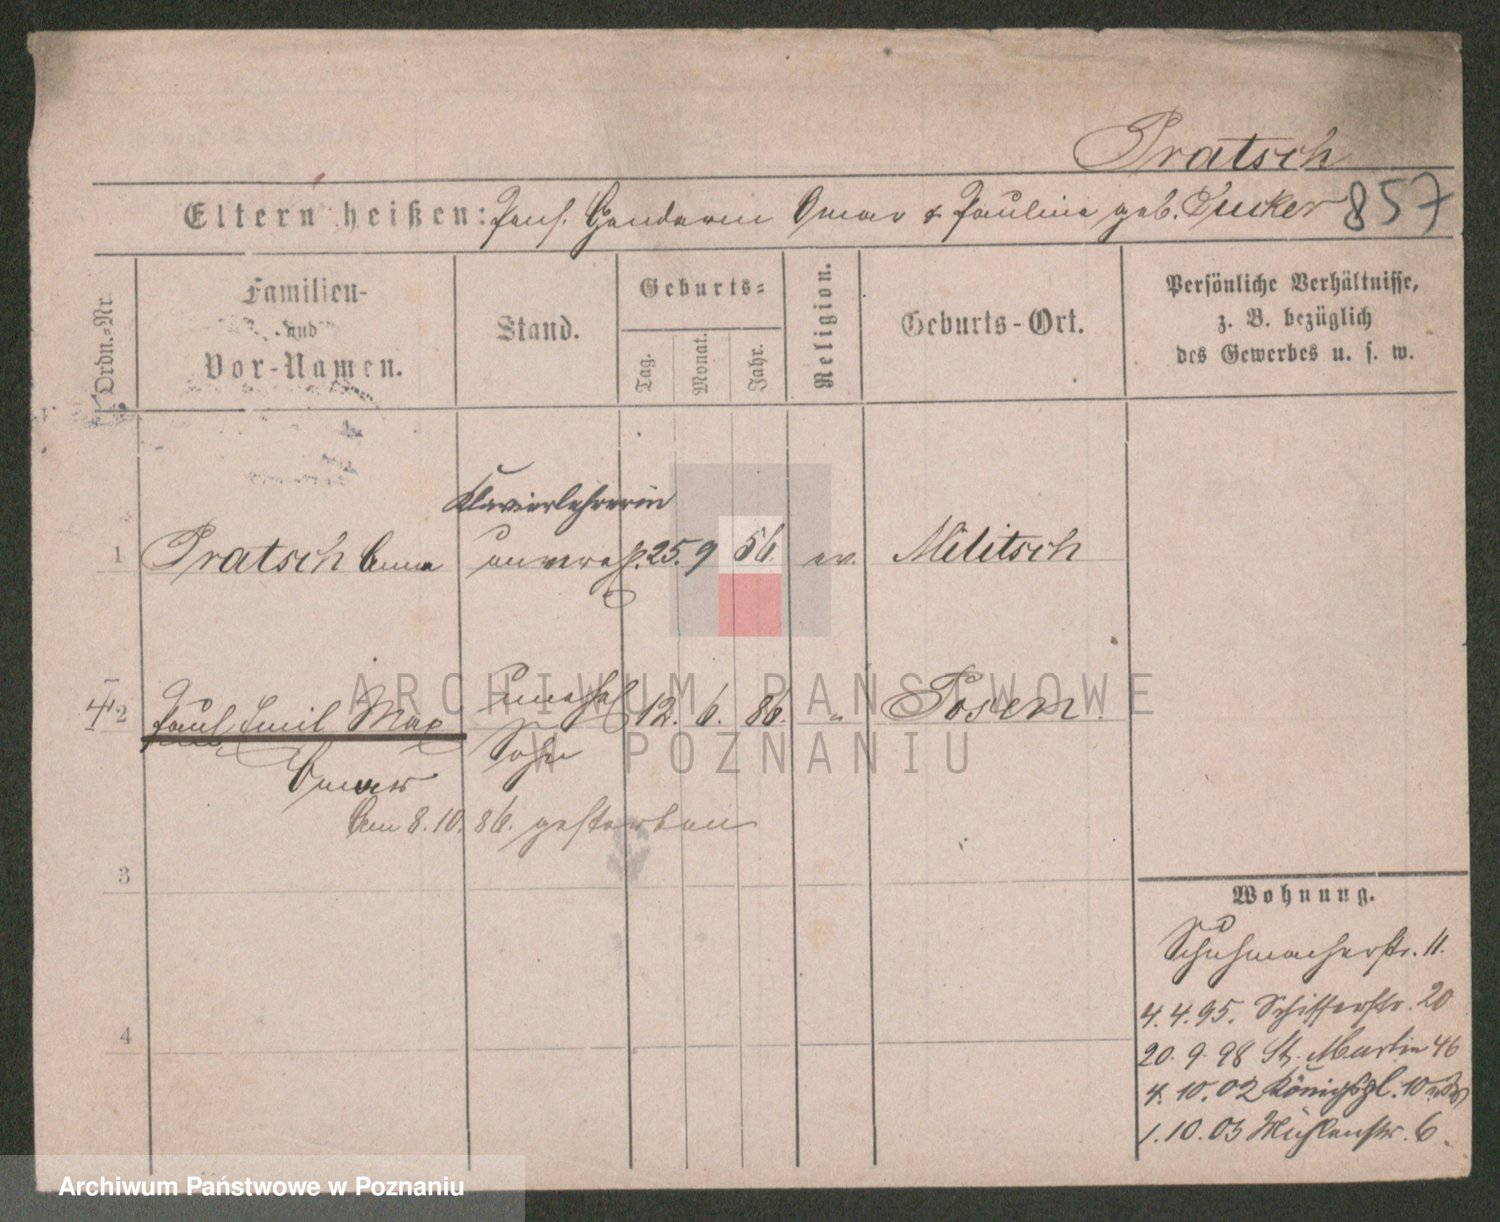 Pratsch
Eltern heißen: pens. Gendarm Omar & Pauline geb. Ducker 857
Ordn.-Nr.
Familien-
und
Vor-Namen.
Stand.
Geburts-
Tag.
Monat.
Jahr.
Religion.
Geburts-Ort.
Persönliche Verhältnisse,
z. B. bezüglich
des Gewerbes u. s. w.
Klavierlehrerin
1 Pratsch Anna unvereh. 25. 9 56. ev. Militsch
2 Paul Emil Max unehel 12. 6. 86. " Posen.
Sohn
Omar
Am 8.10.86. gestorben
3
4
Wohnung.
Schuhmacherstr. 11.
4. 4. 95. Schifferstr. 20
20. 9. 98 St. Martin 46
4. 10. 02 Königspl. 10
1. 10. 03 Mühlenstr. 6.
ARCHIWUM PAŃSTWOWE
W POZNANIU
Archiwum Państwowe w Poznaniu